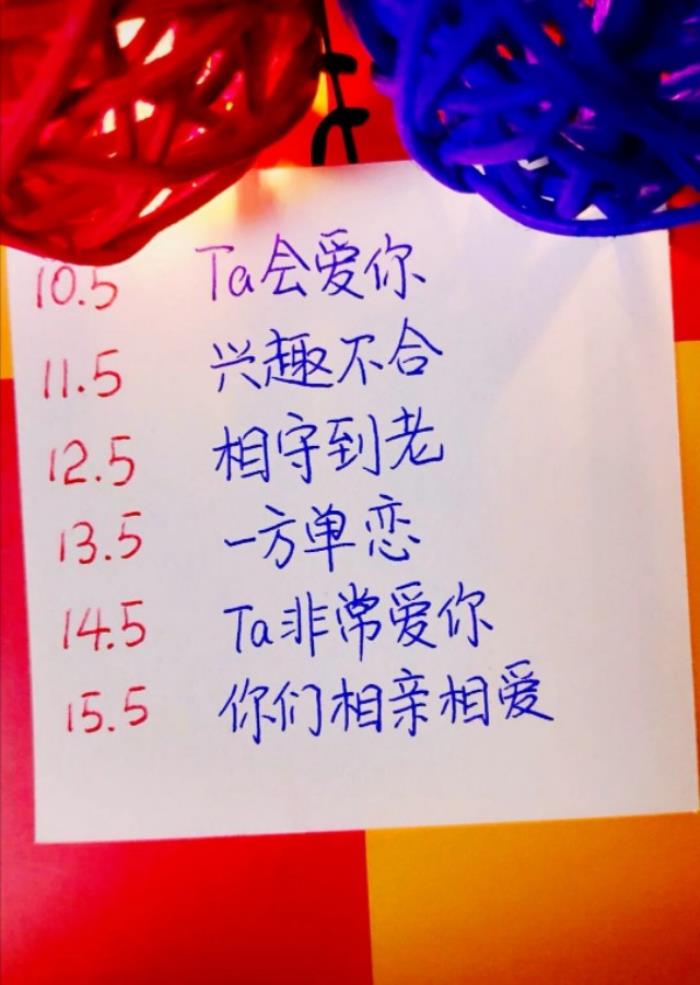 10.5 Ta会爱你
11.5 兴趣不合
12.5 相守到老
13.5 一方单恋
14.5 Ta非常爱你
15.5 你们相亲相爱